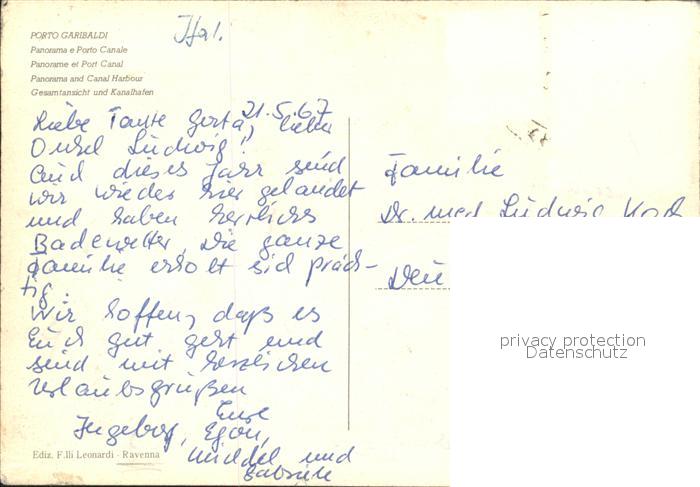 Ital.
PORTO GARIBALDI
Panorama e Porto Canale
Panorame et Port Canal
Panorama and Canal Harbour
Gesamtansicht und Kanalhafen
21.5.67
Liebe Tante Gerta, lieber
Onkel Ludwig!
Auch dieses Jahr sind
wir wieder hier gelandet
und haben herrliches
Badewetter, die ganze
Familie erholt sich präch-
tig.
Wir hoffen, daß es
Euch gut geht und
sind mit herzlichen
Urlaubsgrüßen
Eure
Ingeborg, Egon,
und
Familie
Dr. med. Ludwig
privacy protection
Datenschutz
Ediz. F.lli Leonardi - Ravenna